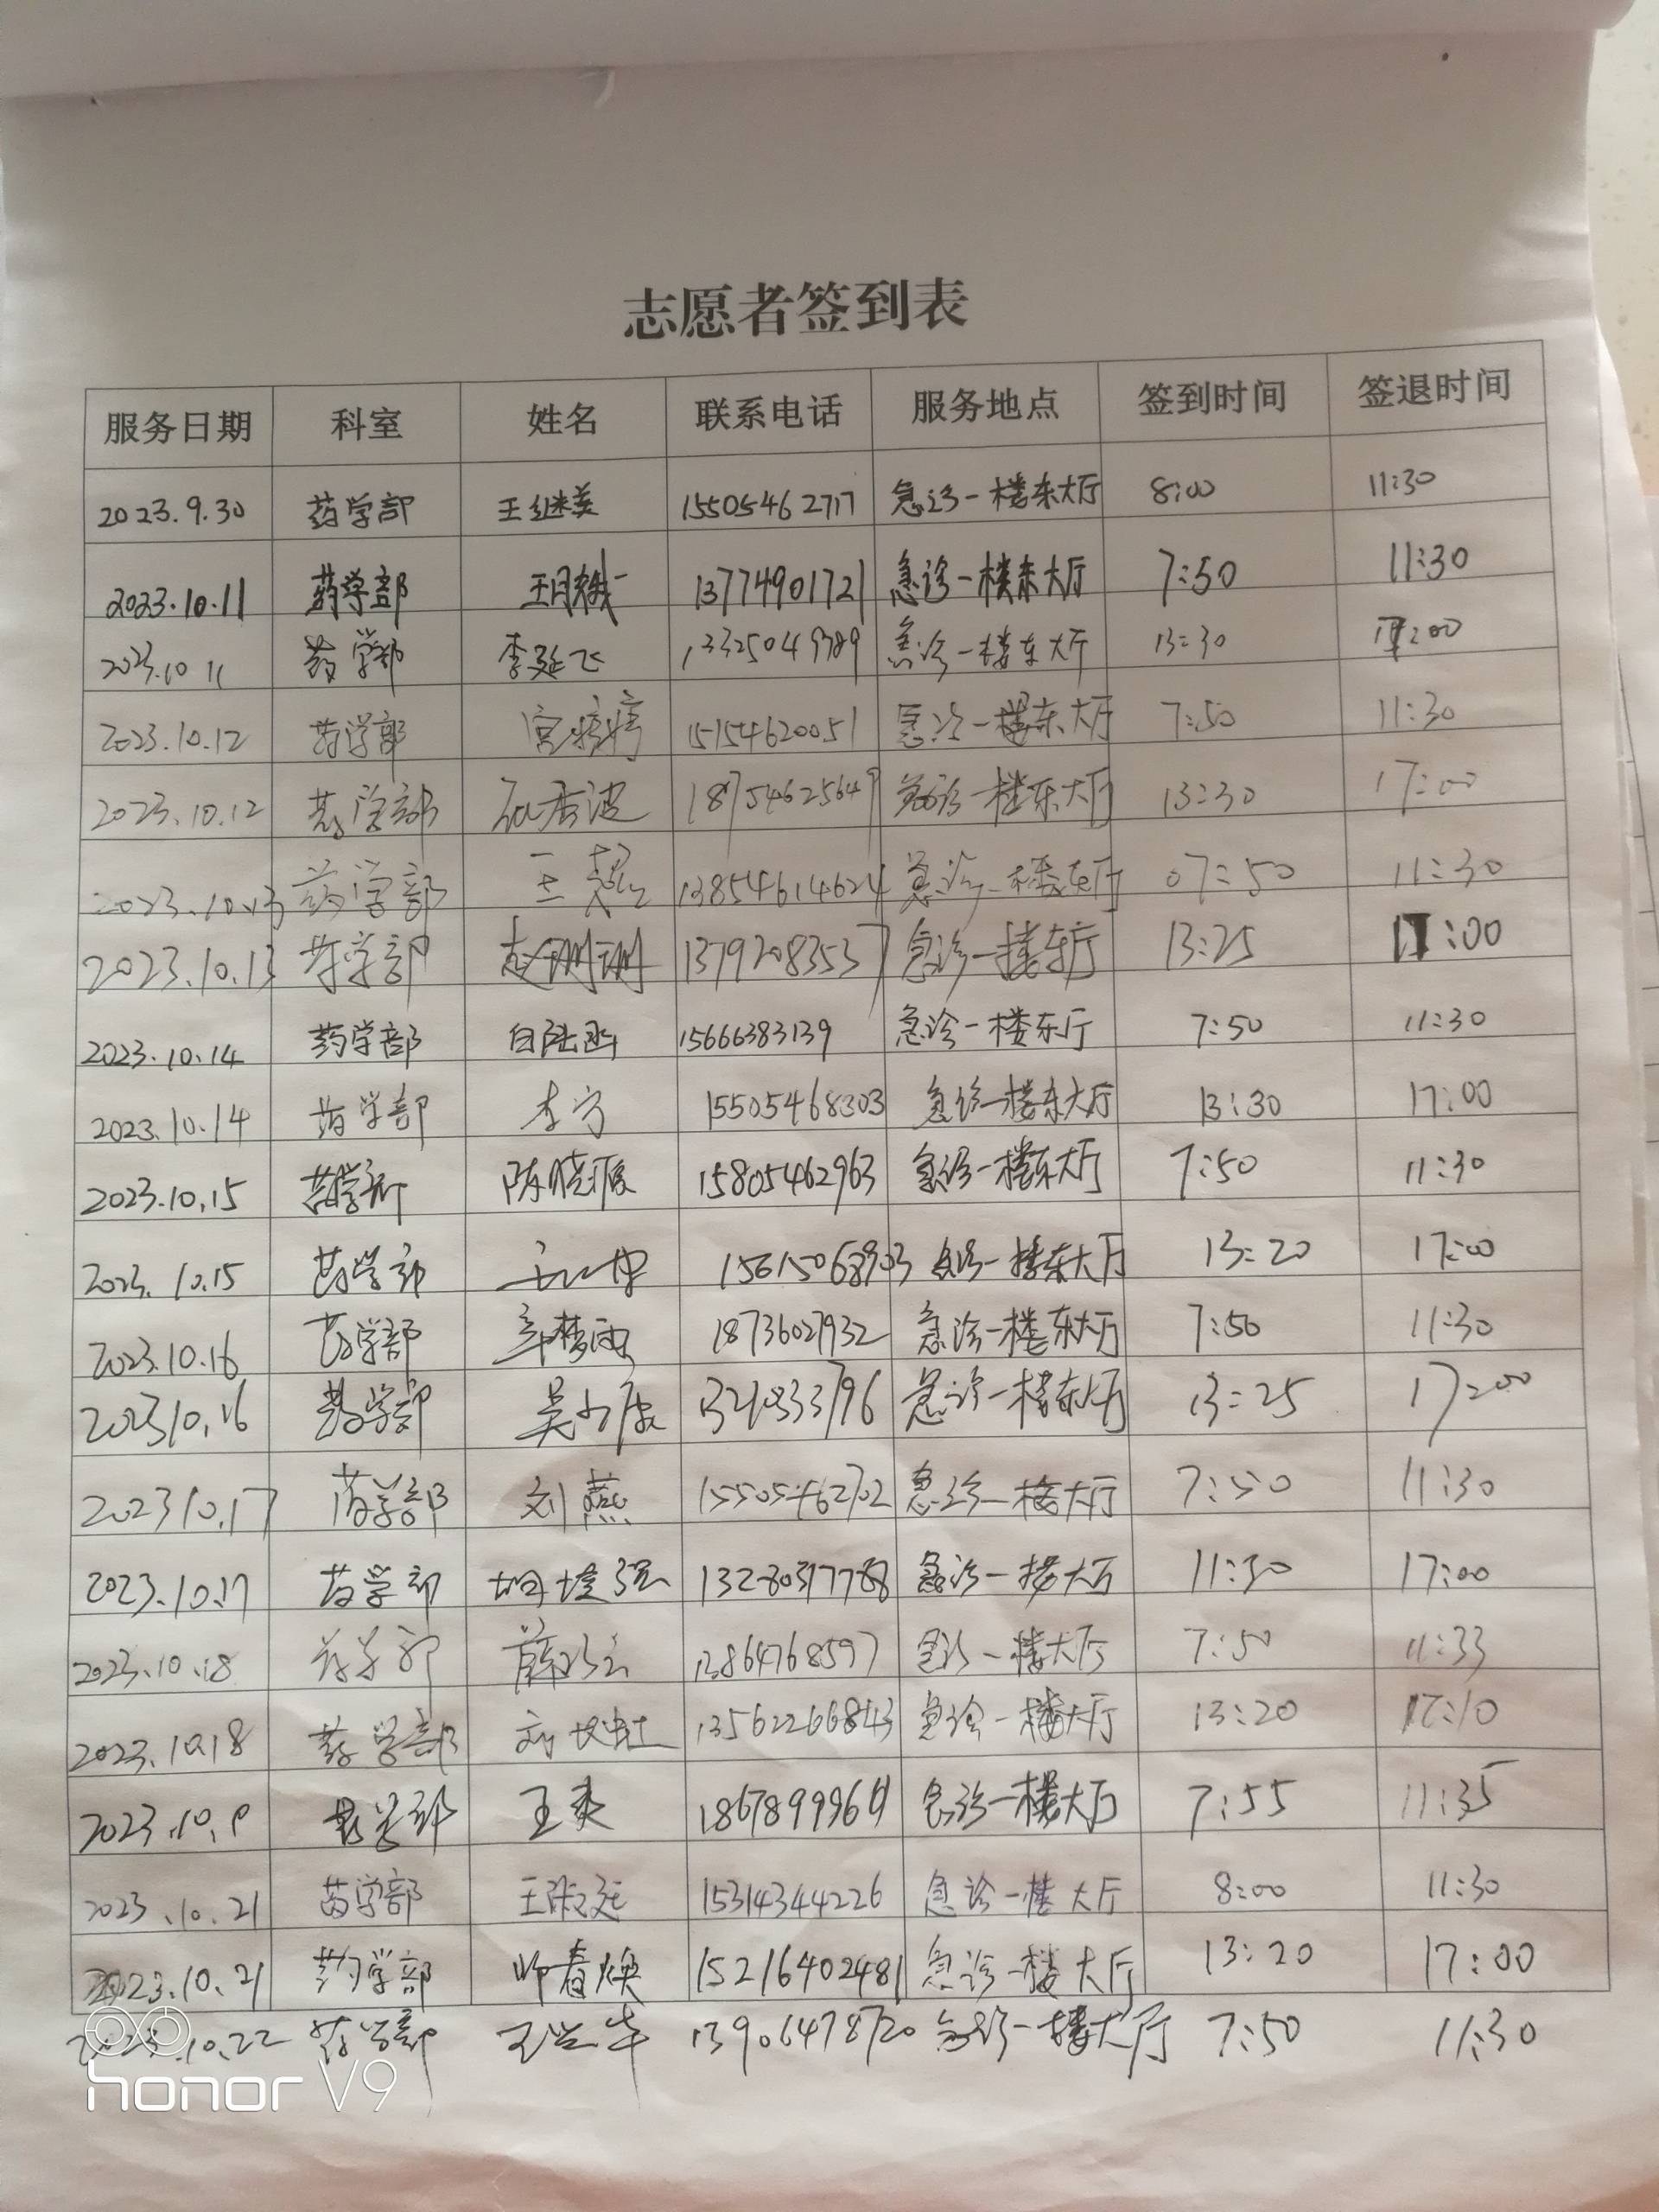 志愿者签到表
服务日期 科室 姓名 联系电话 服务地点 签到时间 签退时间
2023.9.30 药学部 王继美 15505462717 急诊一楼东大厅 8:00 11:30
2023.10.11 药学部 13774901721 急诊一楼东大厅 7:50 11:30
2023.10 11 药学部 李延飞 13325049789 急诊一楼东大厅 13:30 17:00
2023.10.12 药学部 宫婷婷 15154620051 急诊一楼东大厅 7:50 11:30
2023.10.12 药学部 18754625649 急诊一楼东大厅 13:30 17:00
2023.10.13 药学部 王慧 13854614624 急诊一楼东厅 07:50 11:30
2023.10.13 药学部 赵珊珊 13792083537 急诊一楼东厅 13:25 17:00
2023.10.14 药学部 15666383139 急诊一楼东厅 7:50 11:30
2023.10.14 药学部 李宁 15505468303 急诊一楼东大厅 13:30 17:00
2023.10.15 药学部 15805462963 急诊一楼东大厅 7:50 11:30
2023.10.15 药学部 15615068903 急诊一楼东大厅 13:20 17:00
2023.10.16 药学部 18736027932 急诊一楼东大厅 7:50 11:30
202310.16 药学部 急诊一楼东大厅 13:25 17:00
202310.17 药学部 刘燕 15505462702 急诊一楼大厅 7:50 11:30
2023.10.17 药学部 急诊一楼大厅 11:30 17:00
2023.10.18 药学部 13864768597 急诊一楼大厅 7:50 11:33
2023.10.18 药学部 13562266843 急诊一楼大厅 13:20 17:10
药学部 急诊一楼大厅 7:55 11:35
2023.10.21 药学部 15314344226 急诊一楼大厅 8:00 11:30
2023.10.21 药学部 15216402481 急诊一楼大厅 13:20 17:00
2023.10.22 药学部 13906478720 急诊一楼大厅 7:50 11:30
honor V9